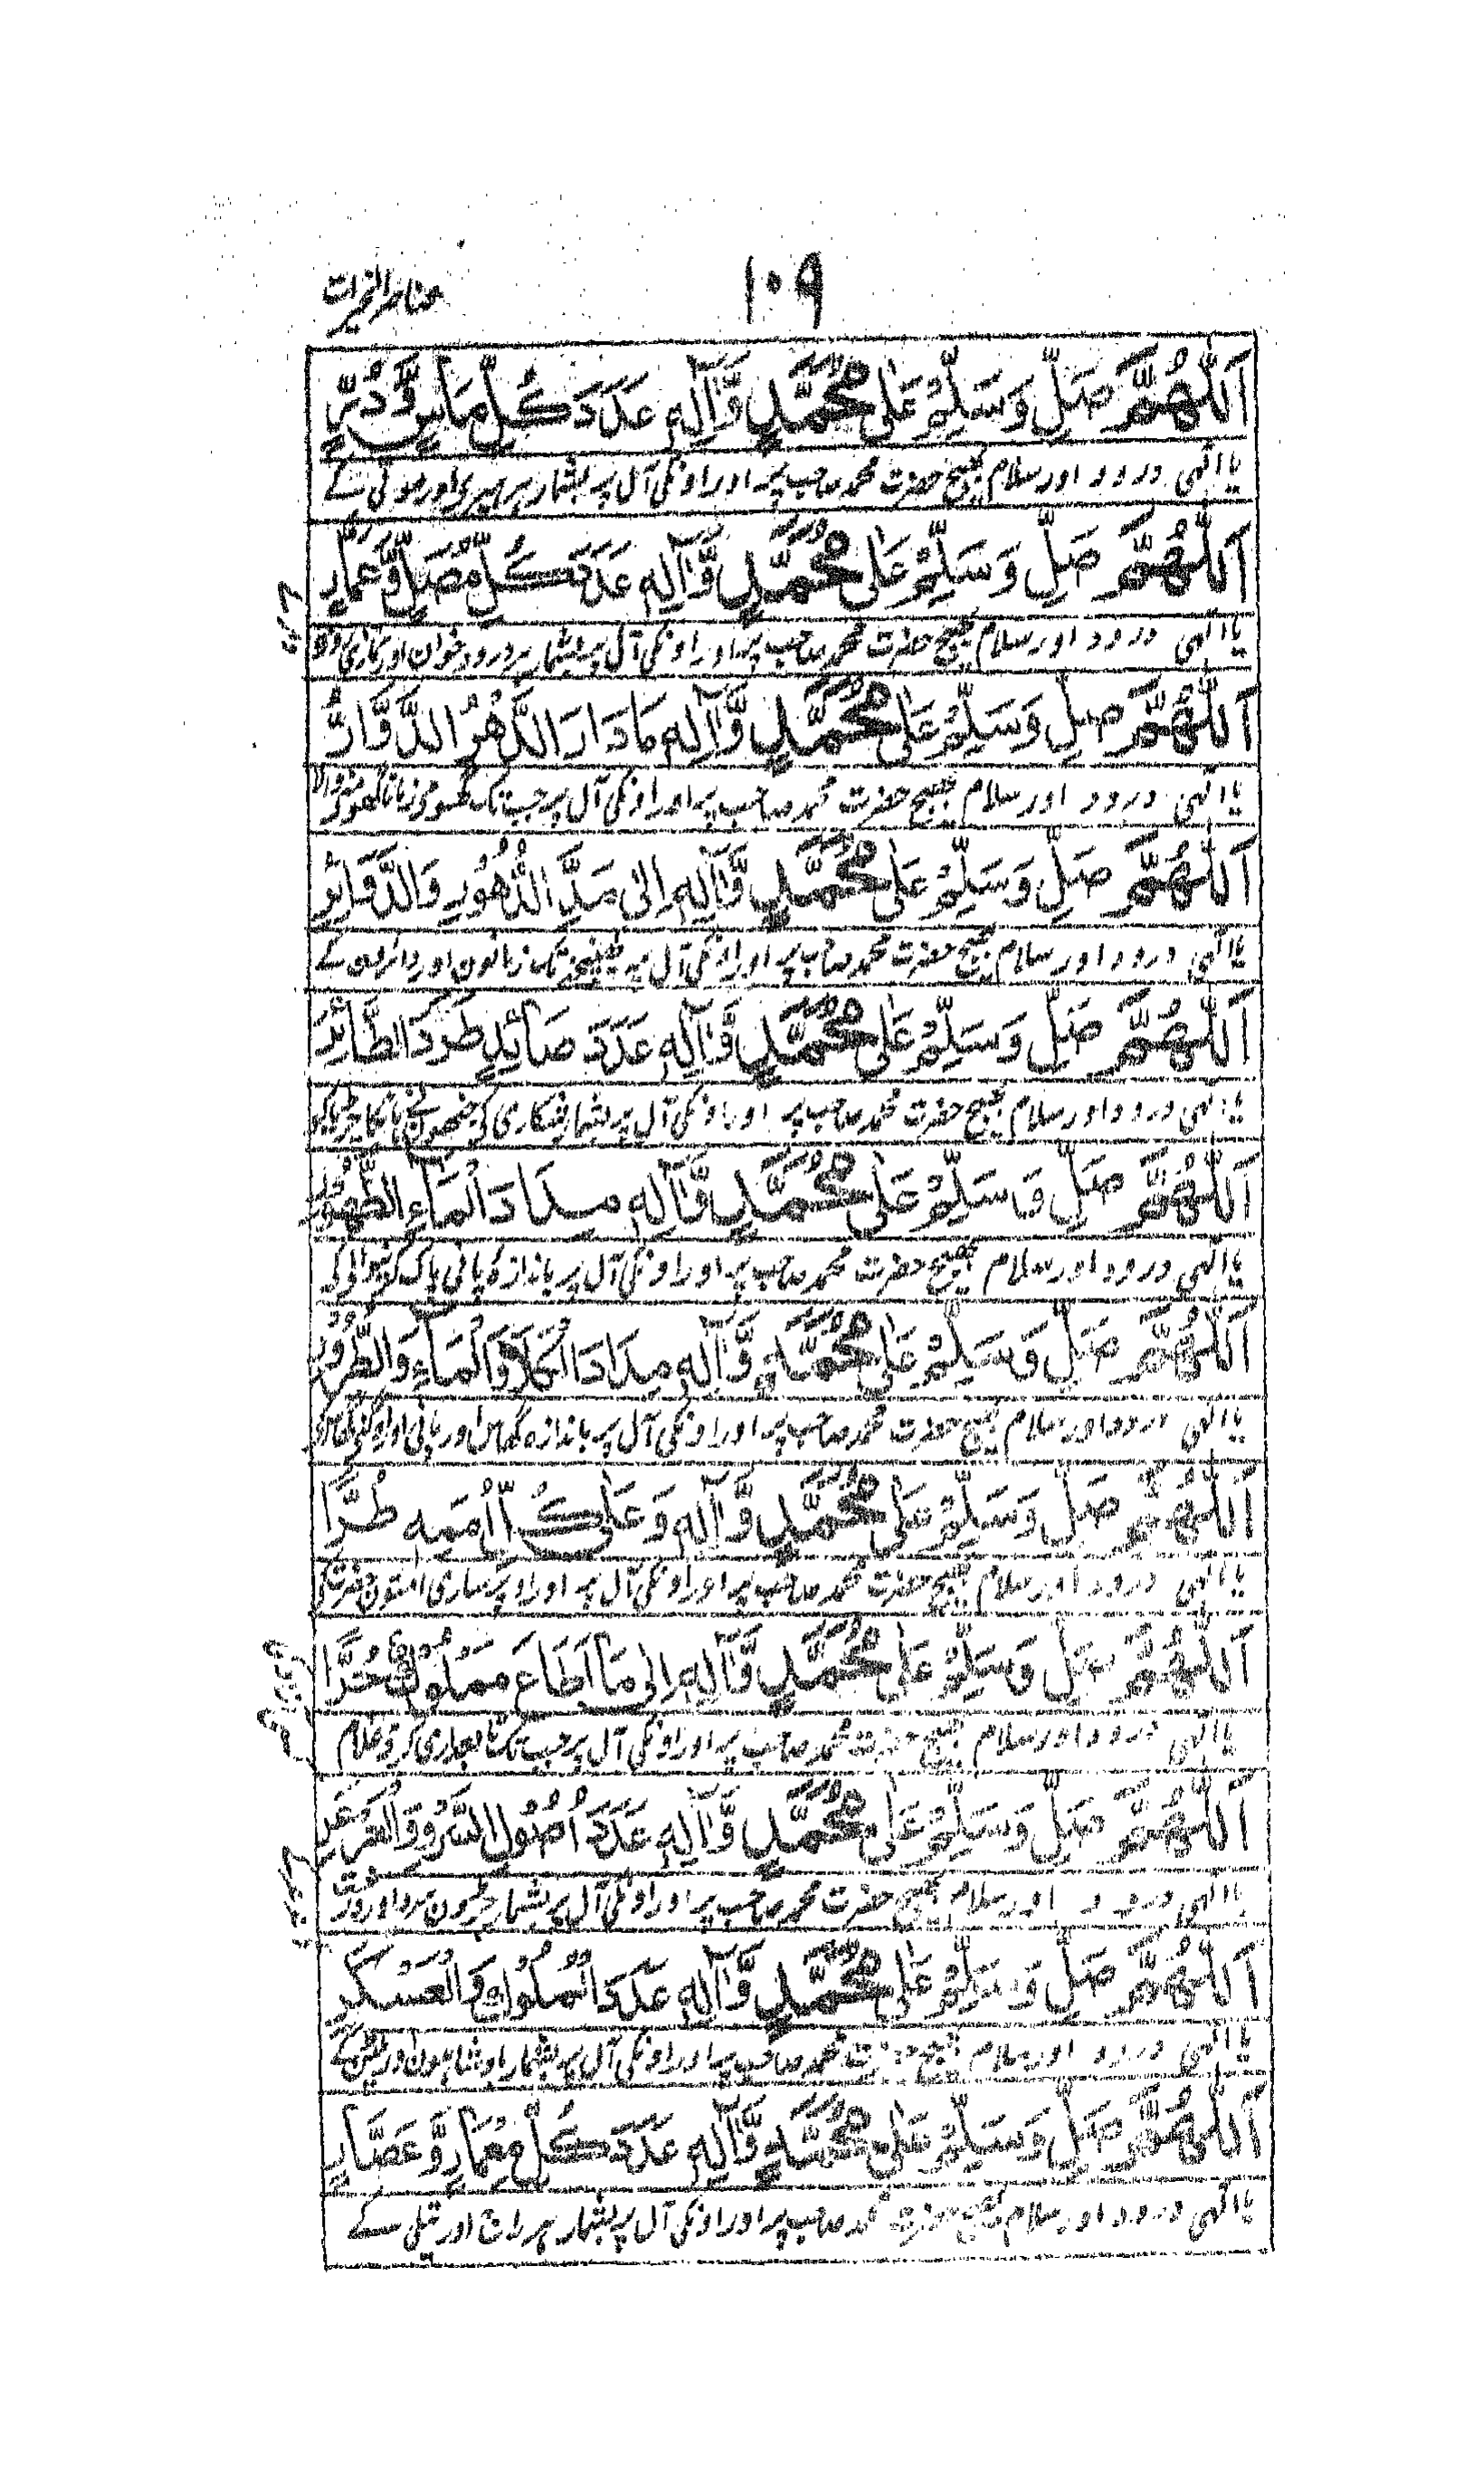 ۱۰۹
عناصر الخیرات
اَللّٰهُمَّ صَلِّ وَسَلِّمْ عَلٰى مُحَمَّدٍ وَّاٰلِهٖ عَدَدَ كُلِّ مَاسٍ وَّدُرٍّ
یا الٰہی درود اور سلام بھیج حضرت محمد صاحب پر اور اونکی آل پر بشمار ہر ہیری اور موتی کے
اَللّٰهُمَّ صَلِّ وَسَلِّمْ عَلٰى مُحَمَّدٍ وَّاٰلِهٖ عَدَدَ كُلِّ مُصَلٍّ وَّعَمَّارٍ
یا الٰہی درود اور سلام بھیج حضرت محمد صاحب پر اور اونکی آل پر بشمار ہر درود خوان اور
اَللّٰهُمَّ صَلِّ وَسَلِّمْ عَلٰى مُحَمَّدٍ وَّاٰلِهٖ مَا دَارَ الدَّهْرُ الدَّوَّارُ
یا الٰہی درود اور سلام بھیج حضرت محمد صاحب پر اور اونکی آل پر جب تک گھومی زمانا
اَللّٰهُمَّ صَلِّ وَسَلِّمْ عَلٰى مُحَمَّدٍ وَّاٰلِهٖ اِلٰى مَدِّ الدُّهُوْرِ وَالدَّوَائِرِ
یا الٰہی درود اور سلام بھیج حضرت محمد صاحب پر اور اونکی آل پر کھینچنے تک زمانون اور دائرون کے
اَللّٰهُمَّ صَلِّ وَسَلِّمْ عَلٰى مُحَمَّدٍ وَّاٰلِهٖ عَدَدَ صَائِدٍ طَرَدَ الطَّائِرَ
یا الٰہی درود اور سلام بھیج حضرت محمد صاحب پر اور اونکی آل پر بشمار شکاری کی
اَللّٰهُمَّ صَلِّ وَسَلِّمْ عَلٰى مُحَمَّدٍ وَّاٰلِهٖ مِدَادَ الْمَاءِ الطَّهُوْرِ
یا الٰہی درود اور سلام بھیج حضرت محمد صاحب پر اور اونکی آل پر باندازہ پانی پاک کرنیوالی کی
اَللّٰهُمَّ صَلِّ وَسَلِّمْ عَلٰى مُحَمَّدٍ وَّاٰلِهٖ مِدَادَ الْكَلَاءِ وَالْمَاءِ
یا الٰہی درود اور سلام بھیج حضرت محمد صاحب پر اور اونکی آل پر باندازہ گھاس اور پانی
اَللّٰهُمَّ صَلِّ وَسَلِّمْ عَلٰى مُحَمَّدٍ وَّاٰلِهٖ وَعَلٰى كُلِّ اُمَمِهٖ طُرًّا
یا الٰہی درود اور سلام بھیج حضرت محمد صاحب پر اور اونکی آل پر اور اوپر ساری امتون حضرت کی
اَللّٰهُمَّ صَلِّ وَسَلِّمْ عَلٰى مُحَمَّدٍ وَّاٰلِهٖ اِلٰى مَا اَطَاعَ مَمْلُوْكٌ حُرًّا
یا الٰہی درود اور سلام بھیج حضرت محمد صاحب پر اور اونکی آل پر جب تک تابعداری کری غلام
اَللّٰهُمَّ صَلِّ وَسَلِّمْ عَلٰى مُحَمَّدٍ وَّاٰلِهٖ عَدَدَ اُصُوْلِ السَّرْوِ وَالْعَرْعَرِ
یا الٰہی درود اور سلام بھیج حضرت محمد صاحب پر اور اونکی آل پر بشمار جڑون سرو اور
اَللّٰهُمَّ صَلِّ وَسَلِّمْ عَلٰى مُحَمَّدٍ وَّاٰلِهٖ عَدَدَ الْمُلُوْكِ وَالْعَسْكَرِ
یا الٰہی درود اور سلام بھیج حضرت محمد صاحب پر اور اونکی آل پر بشمار بادشاہون اور
اَللّٰهُمَّ صَلِّ وَسَلِّمْ عَلٰى مُحَمَّدٍ وَّاٰلِهٖ عَدَدَ كُلِّ مِعْمَارٍ وَّعَصَّارٍ
یا الٰہی درود اور سلام بھیج حضرت محمد صاحب پر اور اونکی آل پر بشمار ہر راج اور تیلی کے